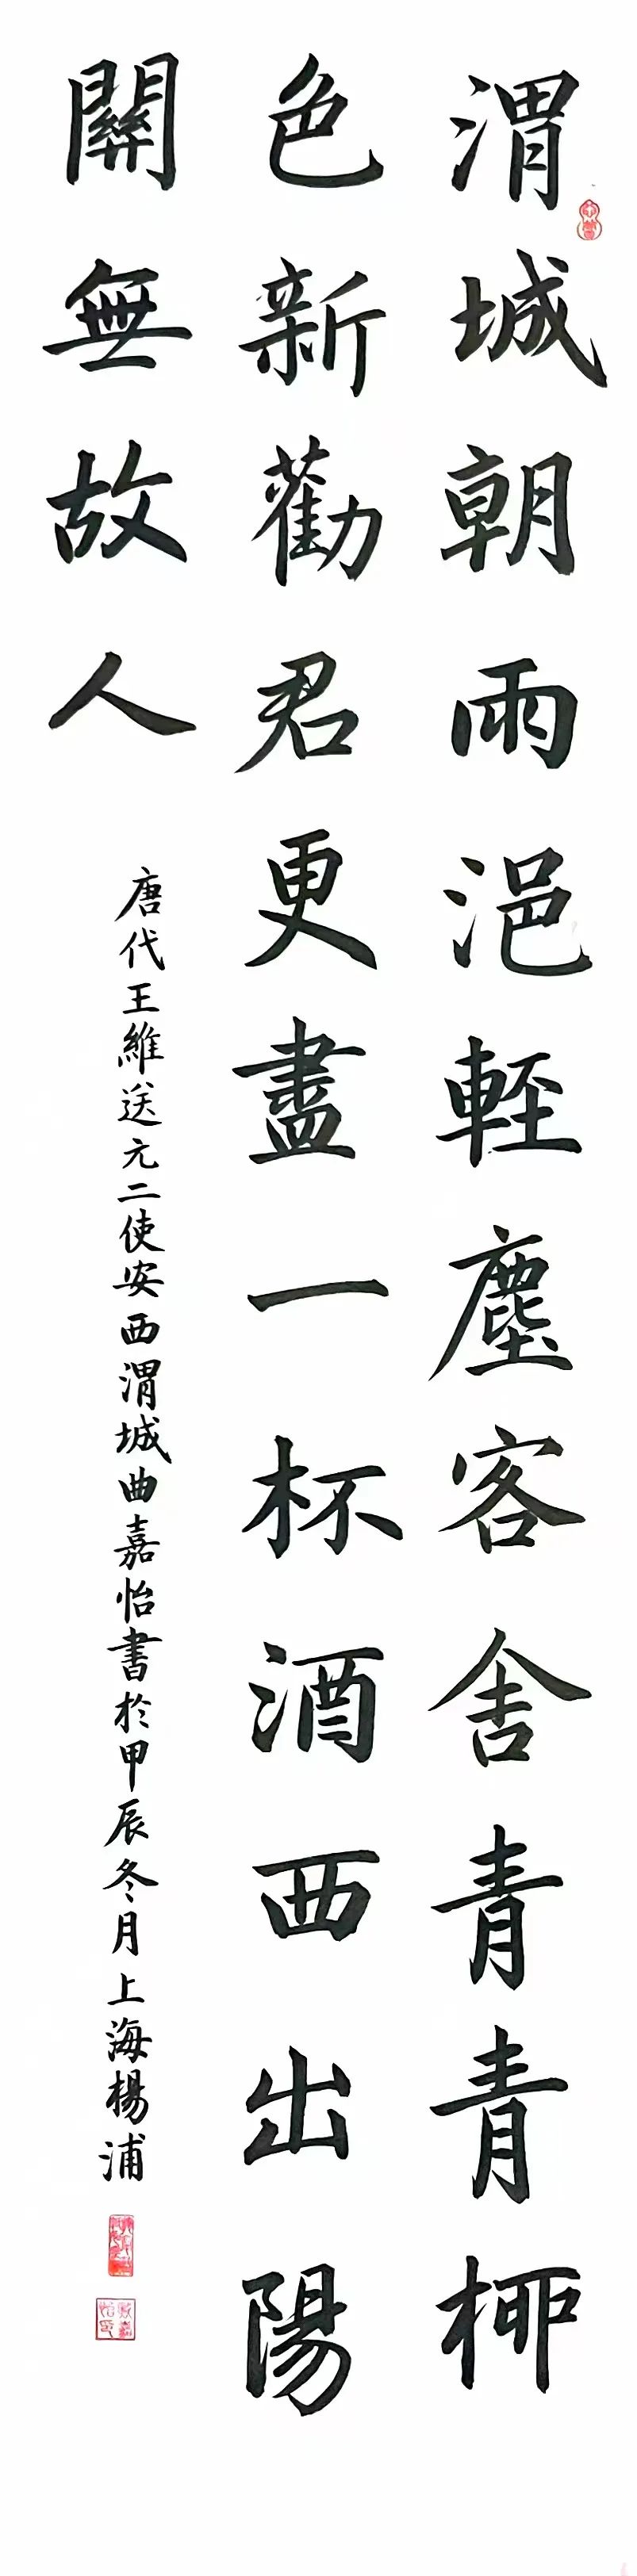 渭城朝雨浥輕塵客舍青青柳
色新勸君更盡一杯酒西出陽
關無故人
唐代王維送元二使安西渭城曲嘉怡書於甲辰冬月上海楊浦